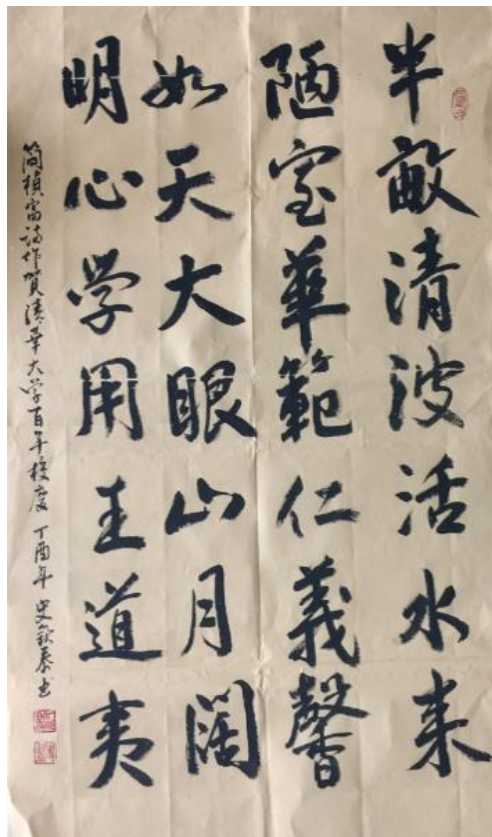 半畝清波活水来
陋室華範仁義馨
如天大眼山月阔
明心学用王道夷
简禎富诗作贺清華大学百年校慶 丁酉年 史欽泰书